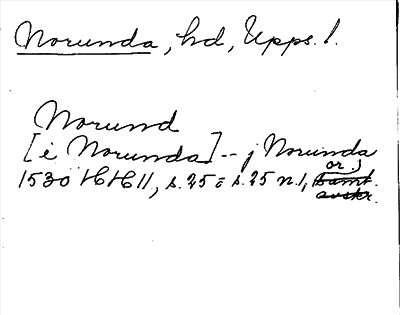 Norunda, hd, Upps. l.
Norund
[i Norunda] -- j Norunda
1530 HH 11, s. 25 o s. 25 n. 1, or. j